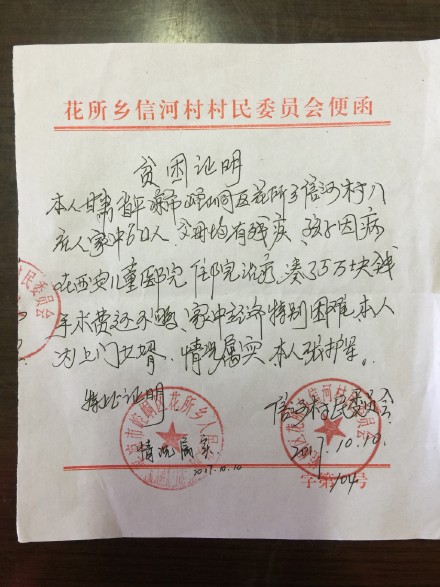 花所乡信河村村民委员会便函
贫困证明
本人甘肃省平凉市崆峒区花所乡信河村八
庄人家中6口人,父母均有残疾,孩子因病
在西安儿童医院住院治疗,凑了5万块钱
手术费还不够,家中经济特别困难,本人
为上门女婿,情况属实,本人张护军。
特此证明
信河村民委员会
2017.10.10.
情况属实
2017.10.10
字第104号
村民委员会
崆峒区花所乡人民
区花所乡信河村民委员会